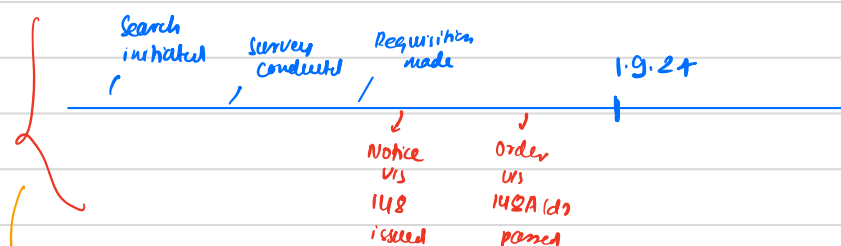 Search
initiated
Survey
conducted
Requisition
made
1.9.24
Notice
u/s
148
issued
Order
u/s
148A(d)
passed